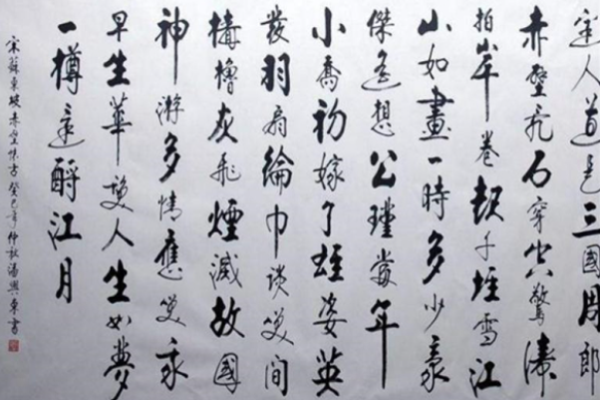 邊人道是三國周郎
赤壁亂石穿空驚濤
拍岸卷起千堆雪江
山如畫一時多少豪
傑遙想公瑾當年
小喬初嫁了雄姿英
發羽扇綸巾談笑間
檣櫓灰飛煙滅故國
神游多情應笑我
早生華髮人生如夢
一樽還酹江月
宋蘇東坡赤壁懷古癸巳年仲秋湯興東書